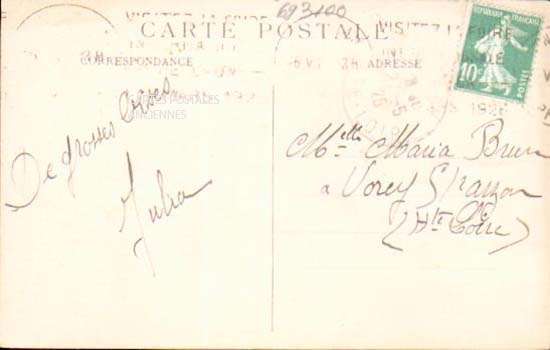 693100
VISITEZ LA FOIRE
VISITEZ LA FOIRE
CARTE POSTALE
CORRESPONDANCE
ADRESSE
REPUBLIQUE FRANÇAISE
10c
POSTES
1926
CARTES POSTALES
ANCIENNES
De grosses bises
Julia
Melle Maria Brun
à Vorey S/Arzon
(Hte Loire)